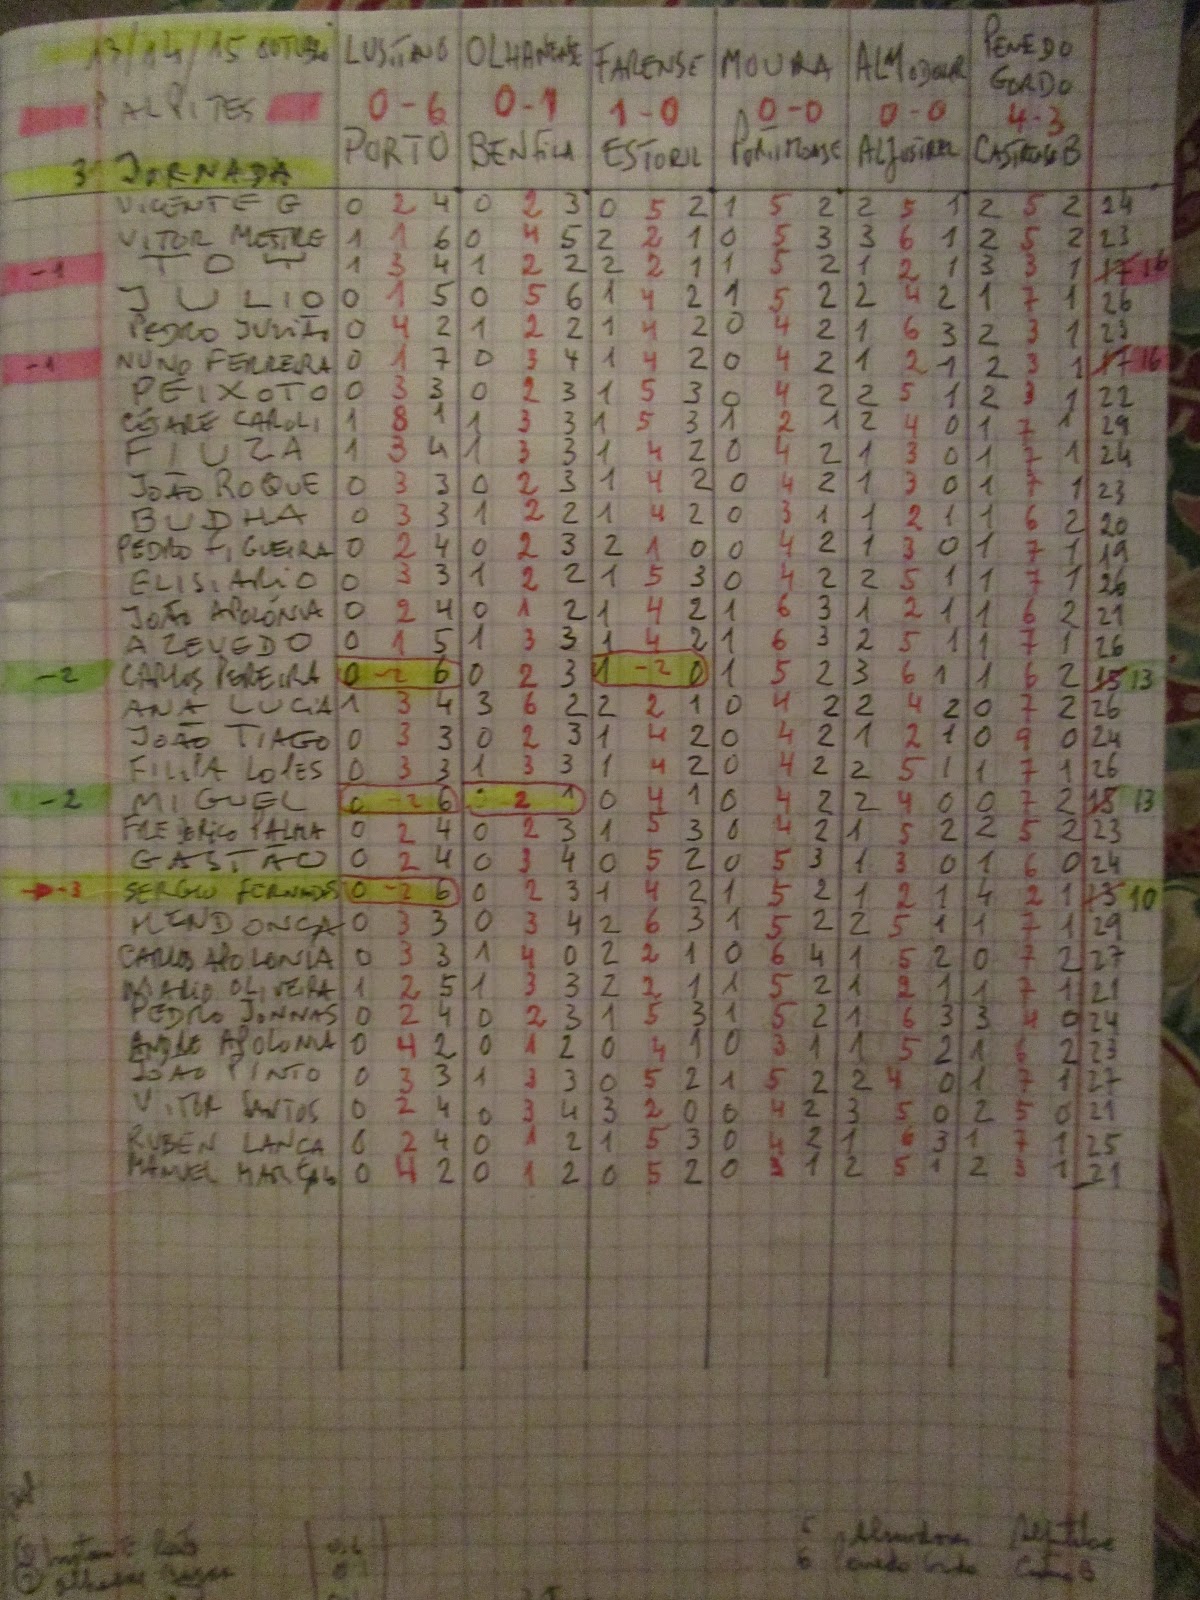 13/14/15 OUTUBRO LUSITANO OLHANENSE FARENSE MOURA ALMODOVAR PENEDO GORDO
PALPITES 0-6 0-1 1-0 0-0 0-0 4-3
3ª JORNADA PORTO BENFICA ESTORIL ALJUSTREL
VICENTE G 0 2 4 0 2 3 0 5 2 1 5 2 2 5 1 2 5 2 24
VITOR MESTRE 1 1 6 0 4 5 2 2 1 0 5 3 3 6 1 2 5 2 23
-1 TOT 1 3 4 1 2 2 2 2 1 1 5 2 1 2 1 3 3 1 17 16
JULIO 0 1 5 0 5 6 1 4 2 1 5 2 2 4 2 1 7 1 26
PEDRO JULIÃO 0 4 2 1 2 2 1 4 2 0 4 2 1 6 3 2 3 1 23
-1 NUNO FERREIRA 0 1 7 0 3 4 1 4 2 0 4 2 1 2 1 2 3 1 17 16
PEIXOTO 0 3 3 0 2 3 1 5 3 0 4 2 2 5 1 2 3 1 22
CESARE CAROLI 1 8 1 1 3 3 1 5 3 1 2 1 2 4 0 1 7 1 29
FIUZA 1 3 4 1 3 3 1 4 2 0 4 2 1 3 0 1 7 1 24
JOÃO ROQUE 0 3 3 0 2 3 1 4 2 0 4 2 1 3 0 1 7 1 23
BUDHA 0 3 3 1 2 2 1 4 2 0 3 1 1 2 1 1 6 2 20
PEDRO FIGUEIRA 0 2 4 0 2 3 2 1 0 0 4 2 1 3 0 1 7 1 19
ELISIARIO 0 3 3 1 2 2 1 5 3 0 4 2 2 5 1 1 7 1 26
JOÃO APOLÓNIA 0 2 4 0 1 2 1 4 2 1 6 3 1 2 1 1 6 2 21
AZEVEDO 0 1 5 1 3 3 1 4 2 1 6 3 2 5 1 1 7 1 26
-2 CARLOS PEREIRA 0 -2 6 0 2 3 1 -2 0 1 5 2 3 6 1 1 6 2 15 13
ANA LUCIA 1 3 4 3 6 2 2 2 1 0 4 2 2 4 2 0 7 2 26
JOÃO TIAGO 0 3 3 0 2 3 1 4 2 0 4 2 1 2 1 0 9 0 24
FILIPA LOPES 0 3 3 1 3 3 1 4 2 0 4 2 2 5 1 1 7 1 26
-2 MIGUEL 0 -2 6 0 -2 1 0 4 1 0 4 2 2 4 0 0 7 2 15 13
FREDERICO PALMA 0 2 4 0 2 3 1 5 3 0 4 2 1 5 2 2 5 2 23
GASTÃO 0 2 4 0 3 4 0 5 2 0 5 3 1 3 0 1 6 0 24
-3 SERGIO FERNANDES 0 -2 6 0 2 3 1 4 2 1 5 2 1 2 1 4 2 1 13 10
MENDONÇA 0 3 3 0 3 4 2 6 3 1 5 2 2 5 1 1 7 1 29
CARLOS APOLONIA 0 3 3 1 4 0 2 2 1 0 6 4 1 5 2 0 7 2 27
MARIO OLIVEIRA 1 2 5 1 3 3 2 2 1 1 5 2 1 2 1 1 7 1 21
PEDRO JONNAS 0 2 4 0 2 3 1 5 3 1 5 2 1 6 3 3 4 0 24
ANDRE APOLONIA 0 4 2 0 1 2 0 4 1 0 3 1 1 5 2 1 6 2 23
JOÃO PINTO 0 3 3 1 3 3 0 5 2 1 5 2 2 4 0 1 7 1 27
VITOR SANTOS 0 2 4 0 3 4 3 2 0 0 4 2 3 5 0 2 5 0 21
RUBEN LANÇA 0 2 4 0 1 2 1 5 3 0 4 2 1 6 3 1 7 1 25
MANUEL MARÇAL 0 4 2 0 1 2 0 5 2 0 3 1 2 5 1 2 3 1 21